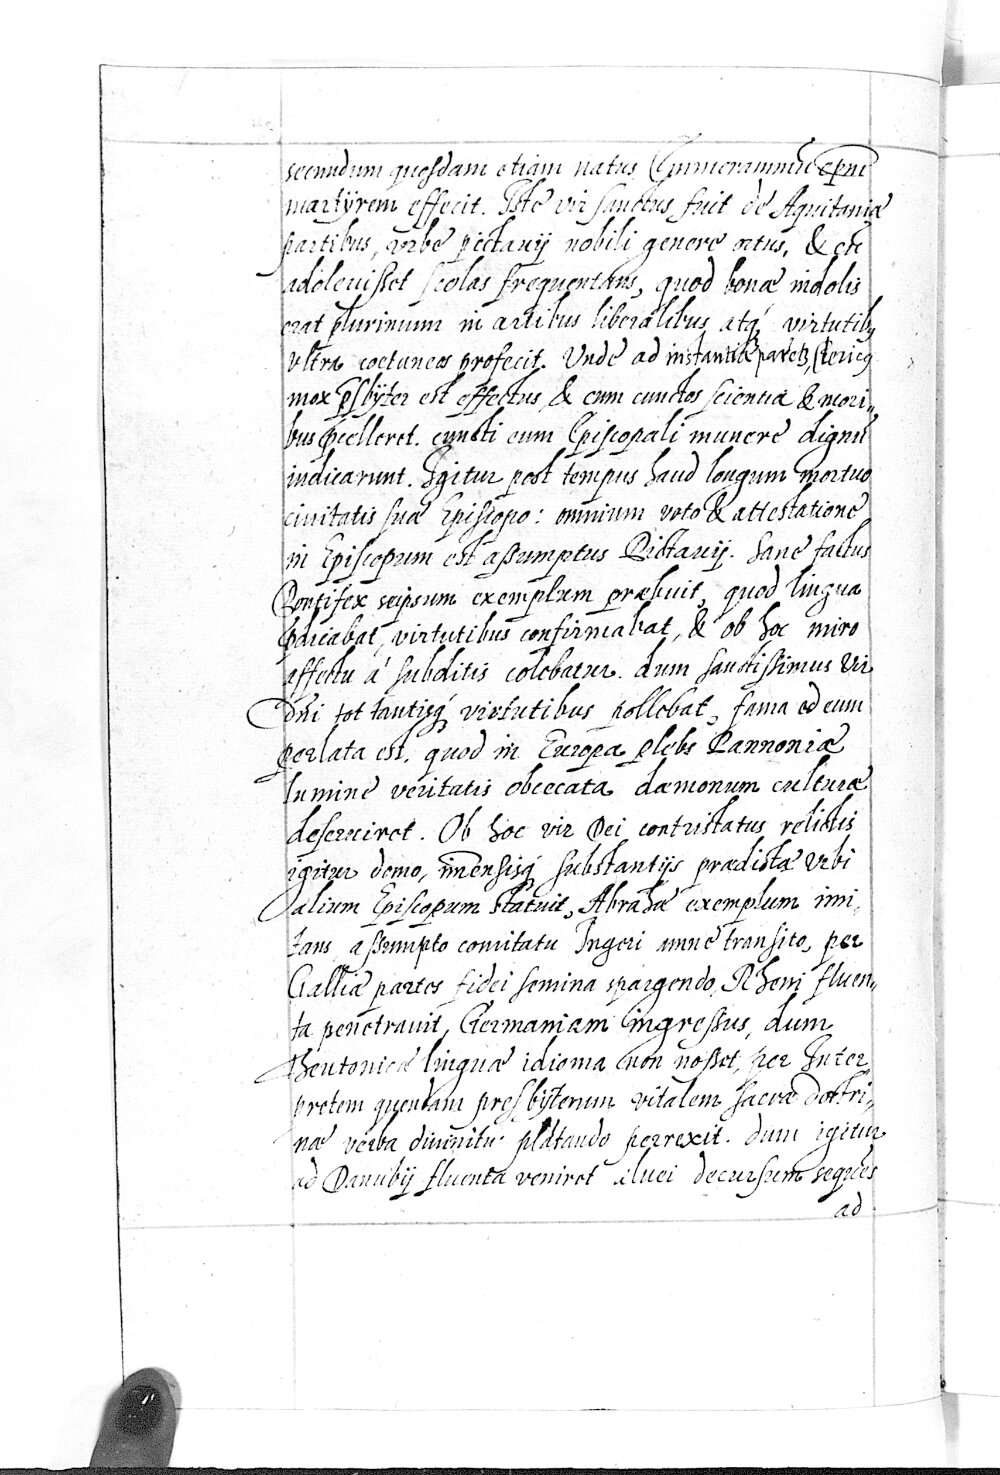 secundum quosdam etiam natus Emmerammũ epm̃
martÿrem effecit. Iste vir sanctus fuit de Aquitaniæ
partibus, vrbe pictauij nobili genere ortus, & cũ
adoleuisset scolas frequentans, quod bonæ indolis
erat plurimum in artibus liberalibus atq́ virtutibȝ
vltra coetaneos profecit. Vnde ad instantiã parẽtũ, clericȝ
mox p̃sbÿter est effectus, & cum cunctos scientia & mori„
bus p̃celleret. cuncti eum Episcopali munere dignũ
iudicarunt. Igitur post tempus haud longum mortuo
ciuitatis suæ Episcopo: omnium voto & attestatione
in Episcopum est assumptus Pictauij. Sane factus
Pontifex seipsum exemplum præbuit, quod lingua
p̃dicabat, virtutibus confirmabat, & ob hoc miro
affectu á subditis colebatur. dum sanctissimus Vir
Dñi tot tantisq́ virtutibus pollebat, fama ad eum
perlata est. quod in Europa plebs Pannoniæ
lumine veritatis obcecata dæmonum culturæ
deseruiret. Ob hoc vir Dei contristatus relictis
igitur domo, im̃ensisq́ substantijs prædictæ Vrbi
alium Episcopum statuit, Abrahæ exemplum imi„
tans assumpto comitatu Ingeri amne transito, per
Galliæ partes fidei semina spargendo, Rheni fluen„
ta penetrauit, Germaniam ingressus, dum
theutonicæ linguæ idioma non nosset, per Inter
pretem quendam presbÿterum vitalem sacræ doctri„
næ verba diuinitus plãtando perrexit. dum igitur
ad Danubij fluenta veniret illuci decursum sequẽs
ad